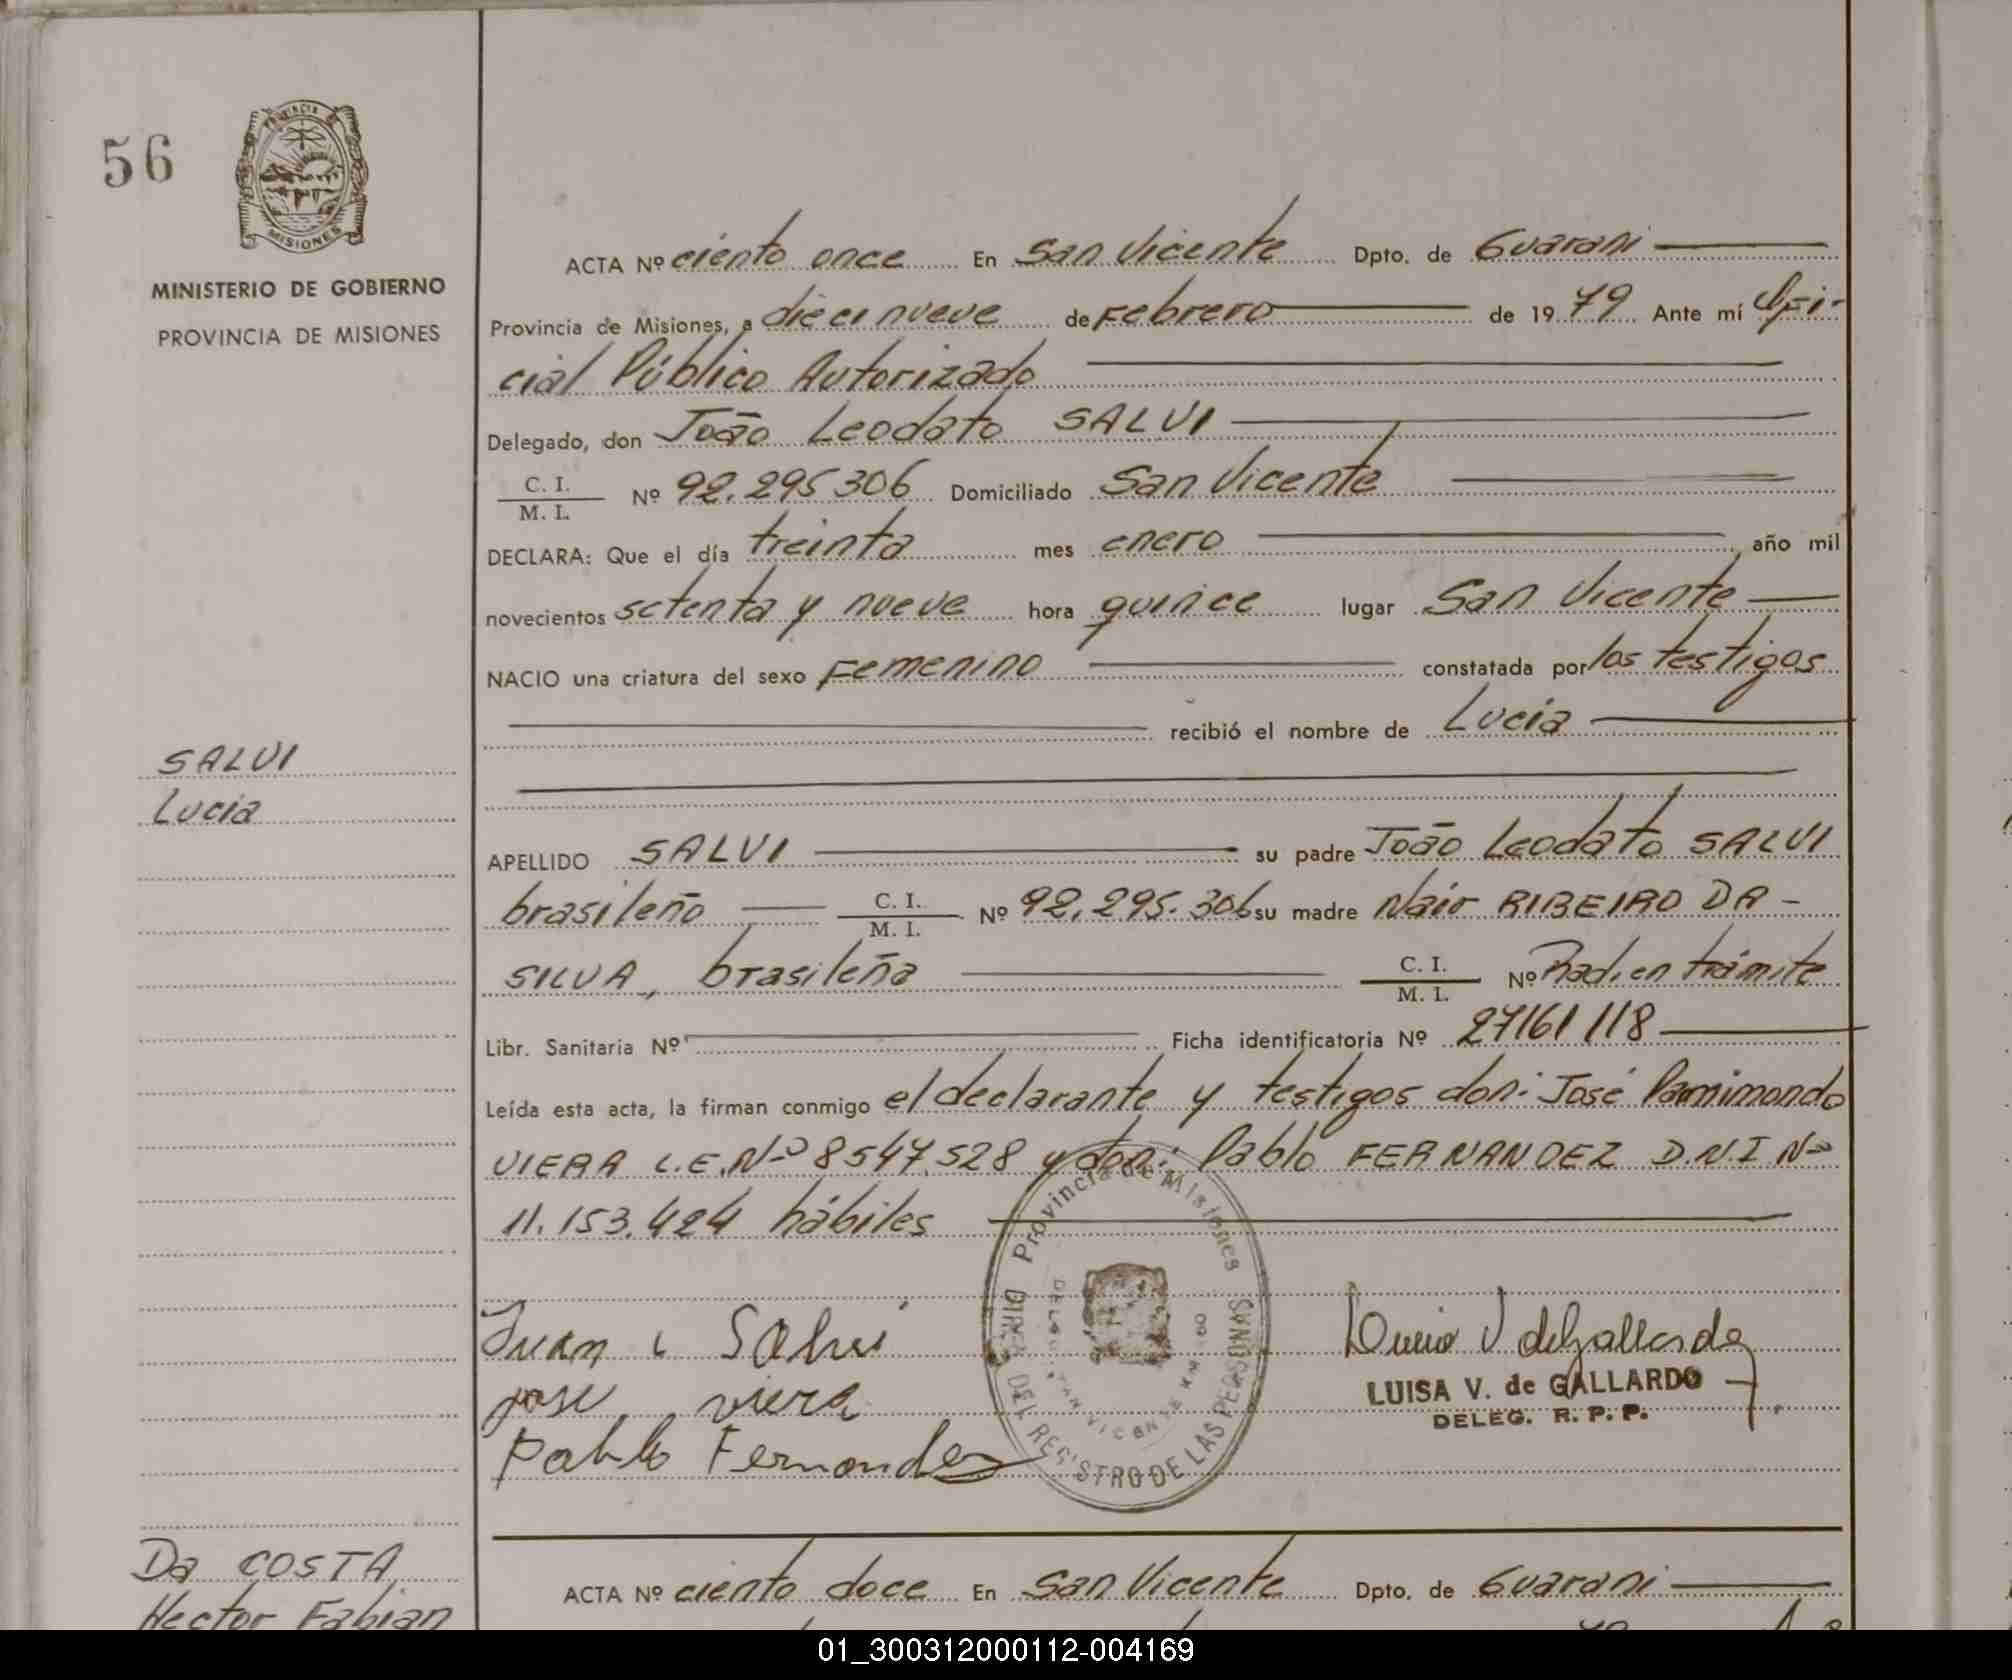 56
PROVINCIA DE
MISIONES
MINISTERIO DE GOBIERNO
PROVINCIA DE MISIONES
ACTA Nº ciento once En San Vicente Dpto. de Guarani
Provincia de Misiones, a diecinueve de Febrero de 1979 Ante mí Ofi-
cial Público Autorizado
Delegado, don João Leodato SALVI
C. I.
M. I. Nº 92.295.306 Domiciliado San Vicente
DECLARA: Que el día treinta mes enero año mil
novecientos setenta y nueve hora quince lugar San Vicente
NACIO una criatura del sexo Femenino constatada por los testigos
recibió el nombre de Lucia
SALVI
Lucia
APELLIDO SALVI su padre João Leodato SALVI
brasileño C. I. M. I. Nº 92.295.306 su madre Nair RIBEIRO DA-
SILVA, brasileña C. I. M. I. Nº Rad. en trámite
Libr. Sanitaria Nº Ficha identificatoria Nº 27161118
Leída esta acta, la firman conmigo el declarante y testigos don: José
VIERA L.E. Nº 8547.528 y don: Pablo FERNANDEZ D.N.I Nº
11.153.424 hábiles
Provincia de Misiones
DIREC. DEL REGISTRO DE LAS PERSONAS
SAN VICENTE
Juan L Salvi
jose viera
Pablo Fernandez
Luisa V de Gallardo
LUISA V. de GALLARDO
DELEG. R. P. P.
Da COSTA
Hector Fabian
ACTA Nº ciento doce En San Vicente Dpto. de Guarani
01_300312000112-004169